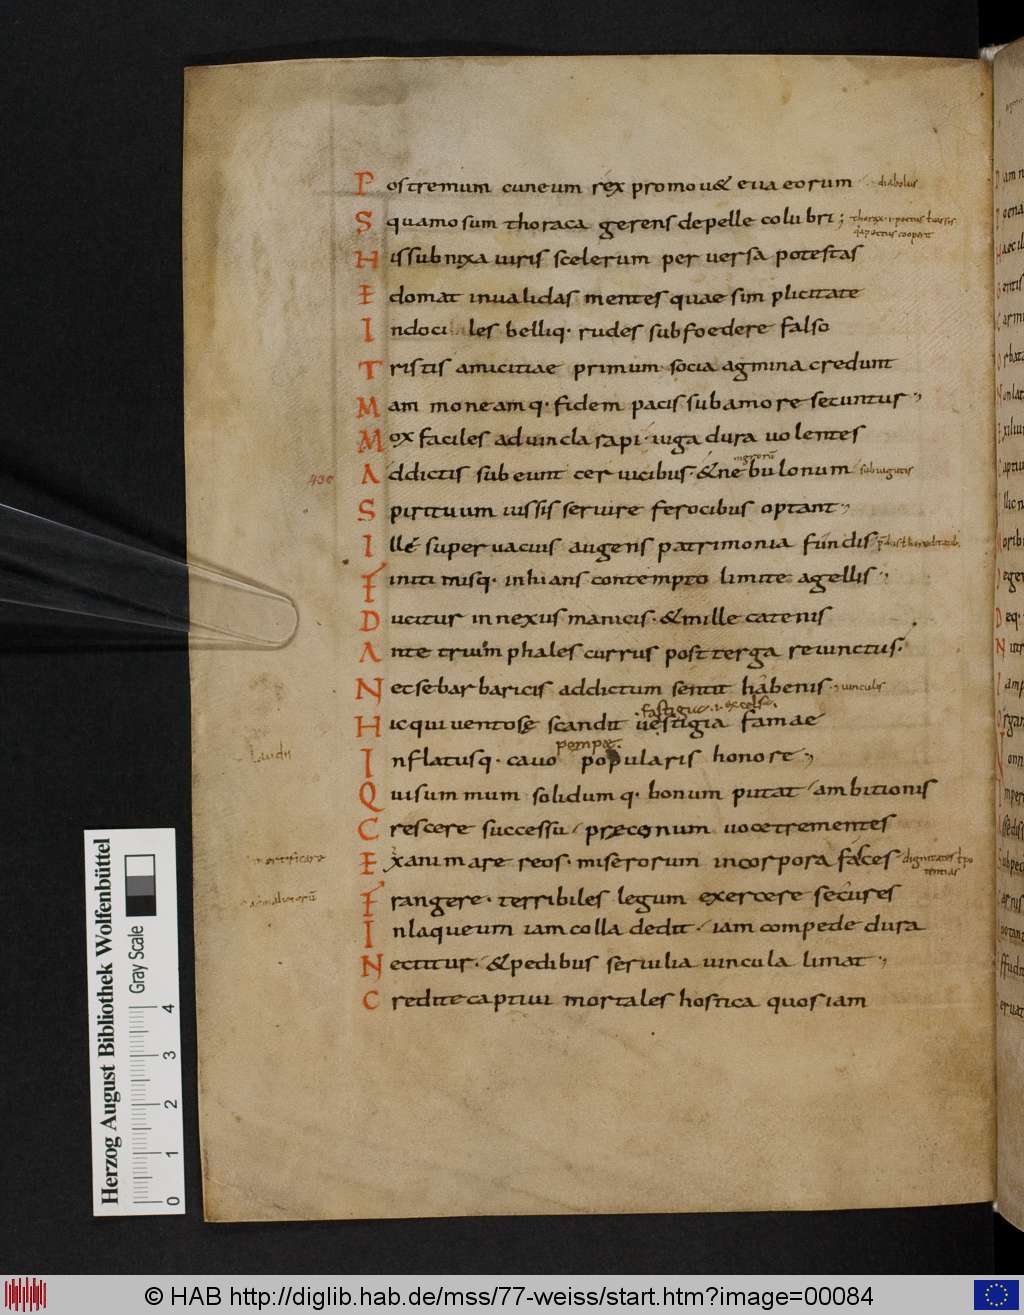 Postremum cuneum rex promou& eua eorum diabolus
Squamosum thoraca gerens depelle colubri;
Hissubnixa uiris scelerum peruersa potestas
Edomat inualidas mentes quae simplicitate
Indociles belliq· rudes subfoedere falso
Tristis amicitiae primum socia agmina credunt
Mammoneamq· fidem pacis subamore secuntur
Mox faciles aduincla rapi· iuga dura uolentes
430 Addictis subeunt ceruicibus· & nebulonum subiugatis
Spirituum iussis seruire ferocibus optant
Ille superuacuis augens patrimonia fundis
Finitimisq· inhians contempto limite agellis
Ducitur innexus manicis· & mille catenis
Ante triumphales currus post terga reuinctus·
Necse barbaricis addictum sentit habenis· uinculis
fastigia· i· excelsa·
Hic qui uentosę scandit uestigia famae
pompę·
Inflatusq· cauo popularis honore
Quisummum solidumq· bonum putat ambitionis
Crescere successu præconum uocetrementes
Exanimare reos· miserorum incorpora fasces
Frangere· terribiles legum exercere secures
Inlaqueum iamcolla dedit· iam compede dura
Nectitur· & pedibus seruilia uincula limat
Credite captiui mortales hostica quosiam
Herzog August Bibliothek Wolfenbüttel
Gray Scale
0 1 2 3 4
© HAB http://diglib.hab.de/mss/77-weiss/start.htm?image=00084